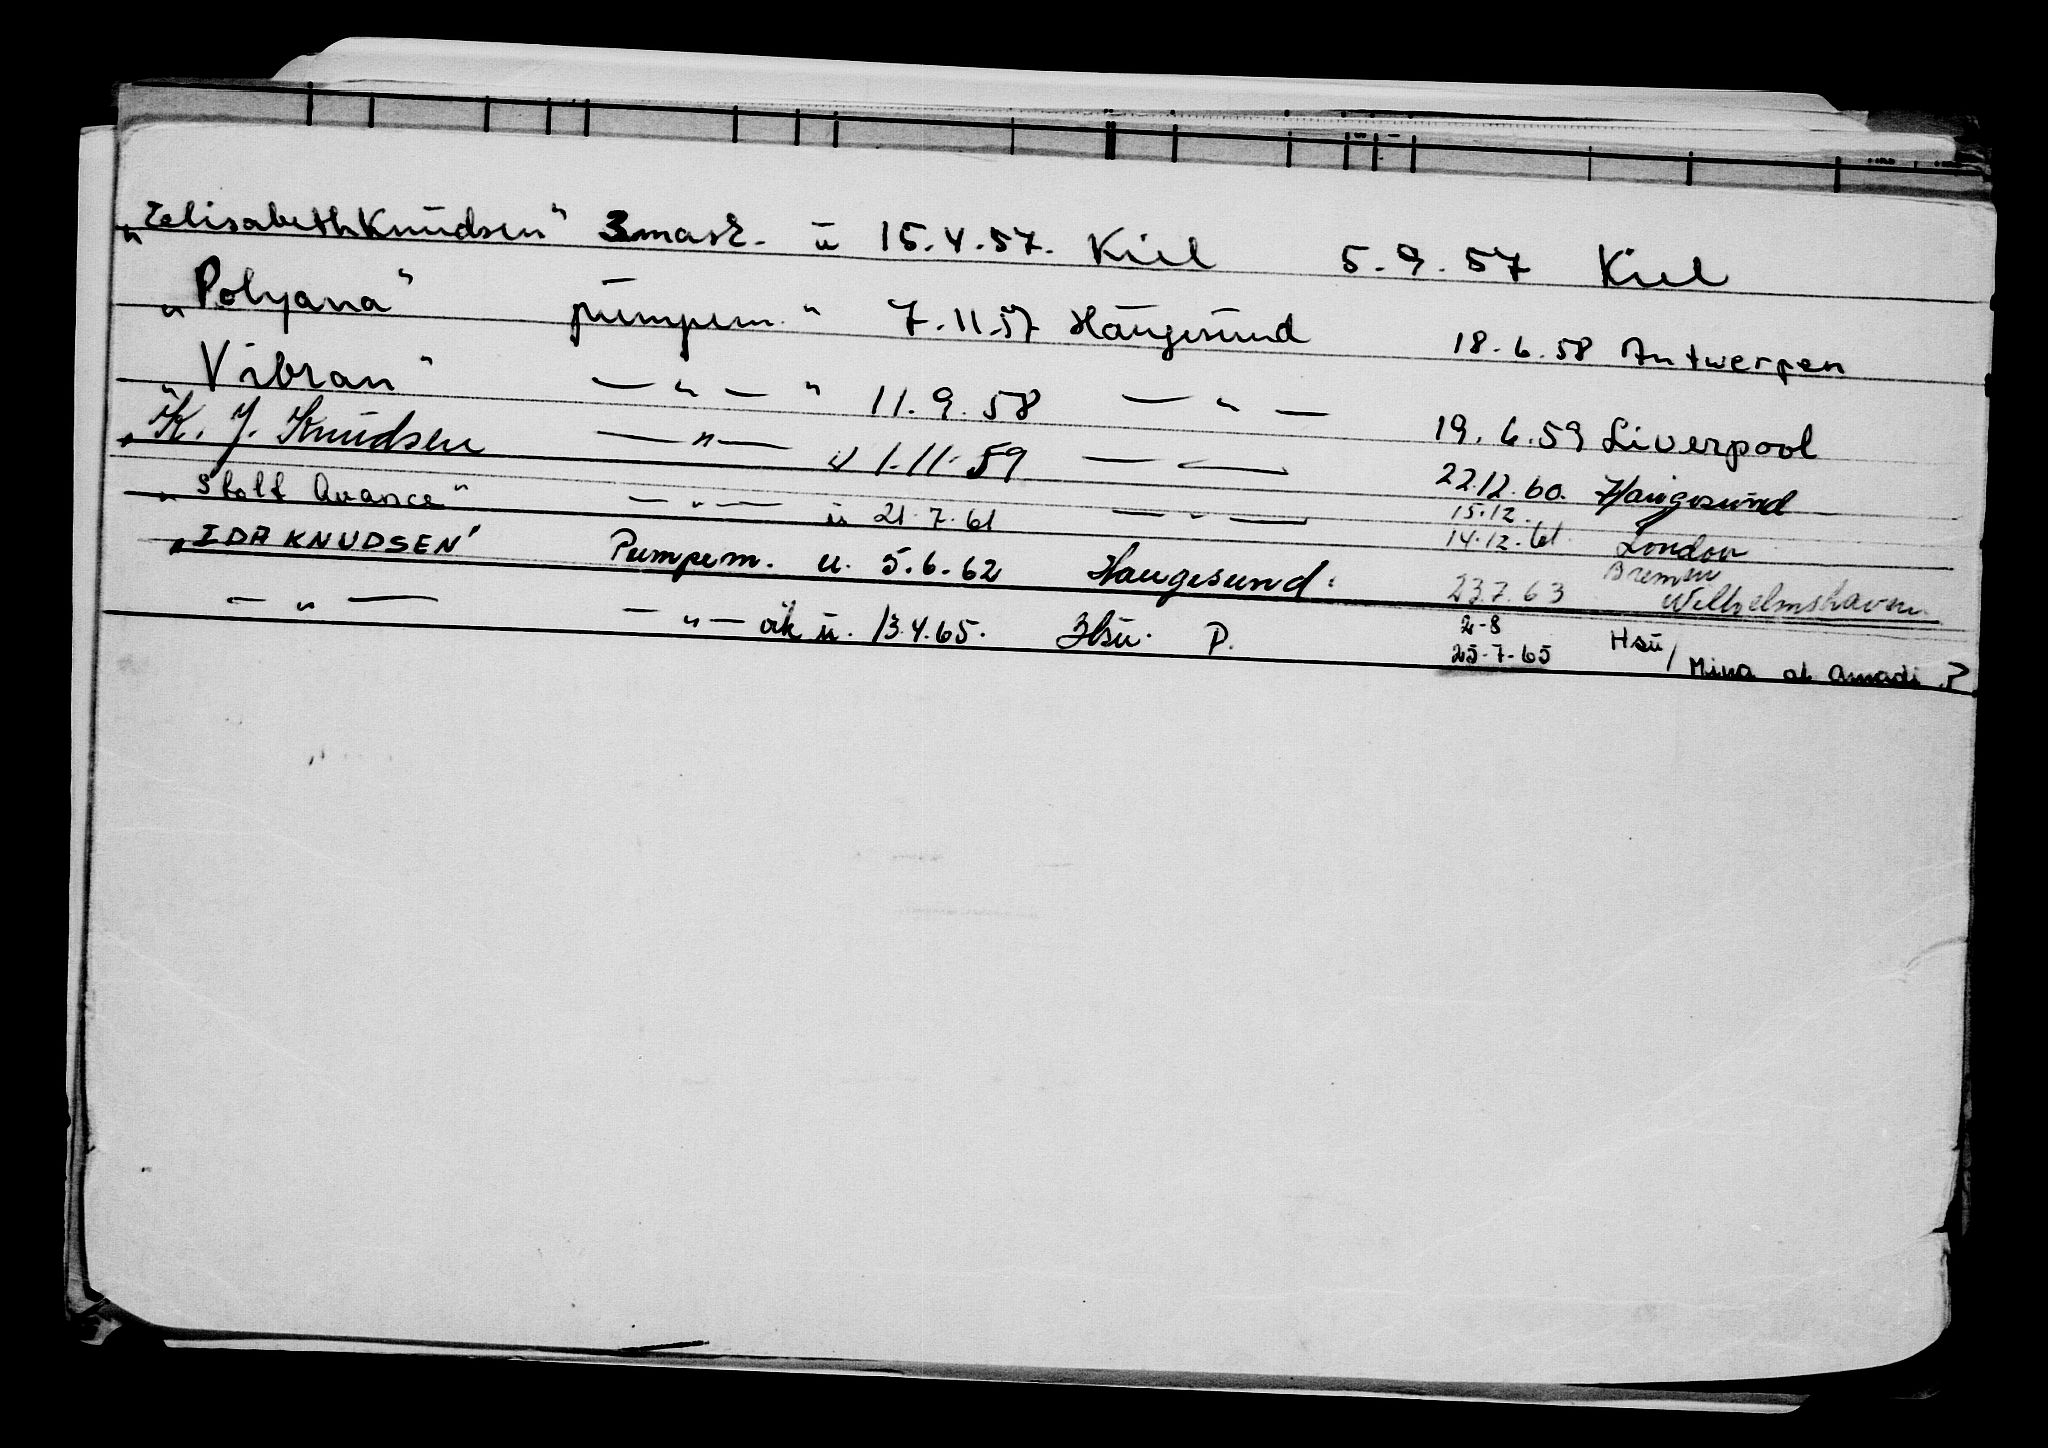 „Elisabeth Knudsen" 3mask. u 15.4.57. Kiel 5.9.57 Kiel
„Polyana" pumpem. " 7.11.57 Haugesund 18.6.58 Antwerpen
„Vibran" — " — " 11.9.58 — " — 19.6.59 Liverpool
„K. J. Knudsen — " — u 1.11.59 — — 22.12.60. Haugesund
„Stolt Avance" — " — u 21.7.61 — " — 15.12. 14.12.61. London
„IDA KNUDSEN" Pumpem. u. 5.6.62 Haugesund. 23.7.63 Bremen Wilhelmshaven
— " — — " — u. 13.4.65. Hsu. P. 2-8 25-7-65 Hsu/ Mina al Amadi P